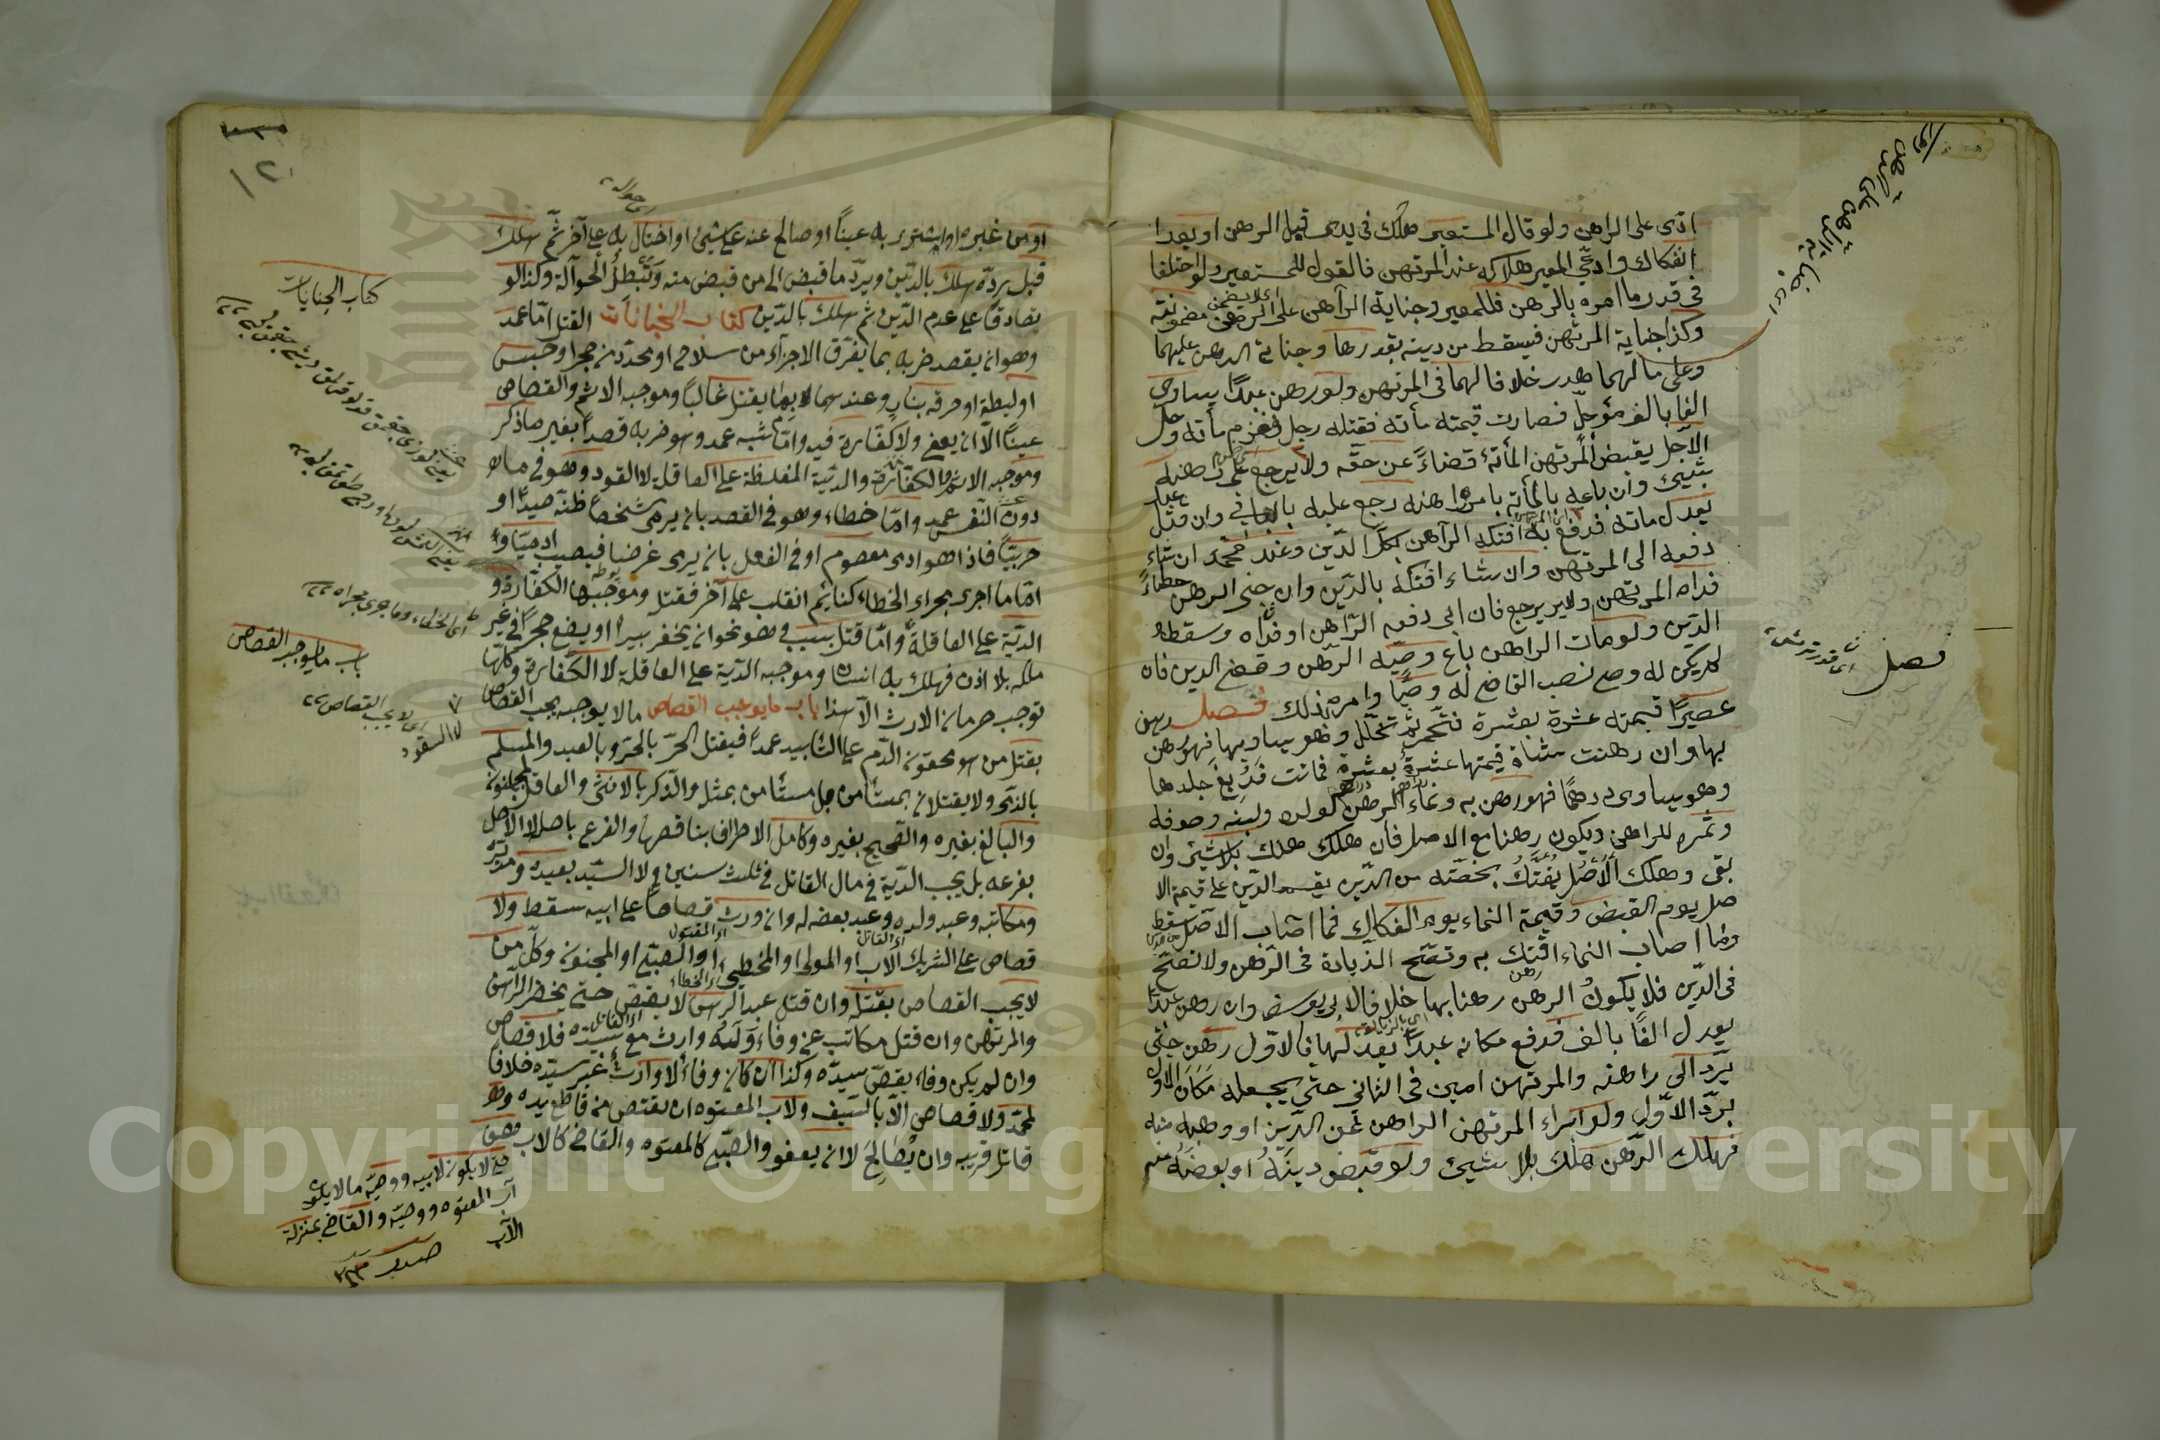 ادى على الراهن ولو قال المستعير هلك فى يدى قبل الرهن او بعد ا
انفكاك وادعى المعير هلاكه عند المرتهن فالقول للمستعير ولو اختلفا
فى قدر ما امره بالرهن فللمعير وجناية الراهن على الرهن مضمونة
وكذا جناية المرتهن فيسقط من دينه بقدرها وجناية الرهن عليهما
وعلى مالهما هدر خلافا لهما فى المرتهن ولو رهن عبدا يساوى
الفا بالف مؤجل فصارت قيمته مأته فقتله رجل فغرم مأته وحل
الاجل يقبض المرتهن المأته قضاء عن حقه ولا يرجع على راهنه
بشيئ وان باعه بالمأته بامر راهنه رجع عليه بالباقى وان قتله عبد
يعدل مأته فدفع به افتكه الراهن بكل الدين وعند محمد ان شاء
دفعه الى المرتهن وان شاء افتكه بالدين وان جنى الرهن خطاء
فداه المرتهن ولا يرجع فان ابى دفعه الراهن او فداه وسقط
الدين ولو مات الراهن باع وصيه الرهن وقضى الدين فان
لم يكن له وصى نصب القاضى له وصيا وامره بذلك فصل رهن
عصيرا قيمته عشرة بعشرة فتخمر ثم تخلل وهو يساويها فهو رهن
بها وان رهنت شاة قيمتها عشرة بعشرة فماتت فدبغ جلدها
وهو يساوى درهما فهو رهن به ونماء الرهن كولده ولبنه وصوفه
وثمره للراهن ويكون رهنا مع الاصل فان هلك هلك بلا شيئ وان
بقى وهلك الاصل يفتك بحصته من الدين يقسم الدين على قيمة الا
صل يوم القبض وقيمة النماء يوم الفكاك فما اصاب الاصل سقط
وما اصاب النماء افتك به وتصح الزيادة فى الرهن ولا تصح
فى الدين فلا يكون الرهن رهنا بها خلافا لابى يوسف وان رهن عبدا
يعدل الفا بالف فدفع مكانه عبدا يعدلها فالاول رهن حتى
يرد الى راهنه والمرتهن امين فى الثانى حتى يجعله مكان الاول
برد الاول ولو ابراء المرتهن الراهن عن الدين او وهبه منه
فهلك الرهن هلك بلا شيئ ولو قبض دينه او بعضه منه
اى جناية الراهن على الرهن
فصل
او من غيره او اشترى به عينا او صالح عنه على شيئ او احتال به على آخر ثم هلك
قبل رده هلك بالدين ويرد ما قبض الى من قبض منه وتبطل الحوالة وكذا لو
تصادقا على عدم الدين ثم هلك بالدين كتاب الجنايات القتل اما عمد
وهو ان يقصد ضربه بما يفرق الاجزاء من سلاح او محدد من حجر او خشب
او ليطة او حرقه بنار وعندهما بما يقتل غالبا وموجبه الاثم والقصاص
عينا الا ان يعفى ولا كفارة فيه واما شبه عمد وهو ضربه قصدا بغير ما ذكر
وموجبه الاثم والكفارة والدية المغلظة على العاقلة لا القود وهو فى ما
دون النفس عمد واما خطاء وهو فى القصد بان يرمى شخصا ظنه صيدا او
حربيا فاذا هو ادمى معصوم او فى الفعل بان يرمى غرضا فيصيب ادميا و
اما ما اجرى مجراء الخطاء كنائم انقلب على آخر فقتله وموجبهما الكفارة و
الدية على العاقلة واما قتل بسبب وهو نحو ان يحفر بيرا او يضع حجرا فى غير
ملكه بلا اذن فهلك به انسان وموجبه الدية على العاقلة لا الكفارة وكلها
توجب حرمان الارث الا هذا باب ما يوجب القصاص وما لا يوجبه يجب القصاص
بقتل من هو محقون الدم على التأبيد عمدا فيقتل الحر بالحر وبالعبد والمسلم
بالذمى ولا يقتلان بمستأمن بل مستأمن بمثله والذكر بالانثى والعاقل بالمجنون
والبالغ بغيره والصحيح بغيره وكامل الاطراف بناقصها والفرع باصله لا الاصل
بفرعه بل يجب الدية فى مال القاتل فى ثلث سنين ولا السيد بعبده ومدبره
ومكاتبه وعبد ولده وعبد بعضه له وان ورث قصاصا على ابيه سقط ولا
قصاص على الشريك الاب او المولى او المخطى او الصبى او المجنون وكل من
لا يجب القصاص بقتله وان قتل عبد الرهن لا يقتص حتى يحضر الراهن
والمرتهن وان قتل مكاتب عن وفاء وله وارث مع سيده فلا قصاص
وان لم يكن وفاء يقتص سيده وكذا ان كان وفاء ولا وارث غير سيده خلافا
لمحمد ولا قصاص الا بالسيف ولاب المعتوه ان يقتص من قاطع يده و
قاتل قريبه وان يصالح لا ان يعفو والصبى كالمعتوه والقاضى كالاب
كتاب الجنايات
باب ما يوجب القصاص
اى لا يجب القصاص
اب المعتوه ووصيه والقاضى بمنزلة
الاب